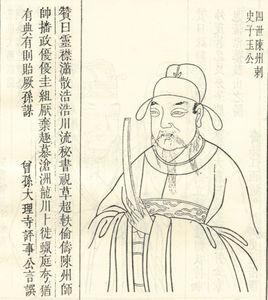 四世陳州刺
史子玉公
贊曰靈襟瀟散浩浩川流秘書視草超軼倫儔陳州師
帥播政優優圭組厭棄趣慕滄洲龍川上徙蠟庭存猶
有典有則貽厥孫謀
曾孫大理寺評事公言譔